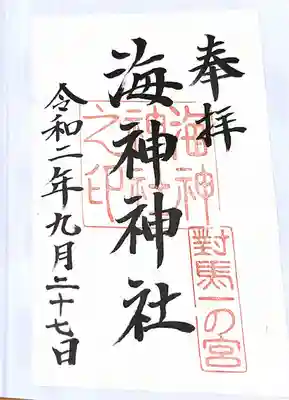 奉拝
對馬一の宮
海神神社
海神
神社
之印
令和二年九月二十七日